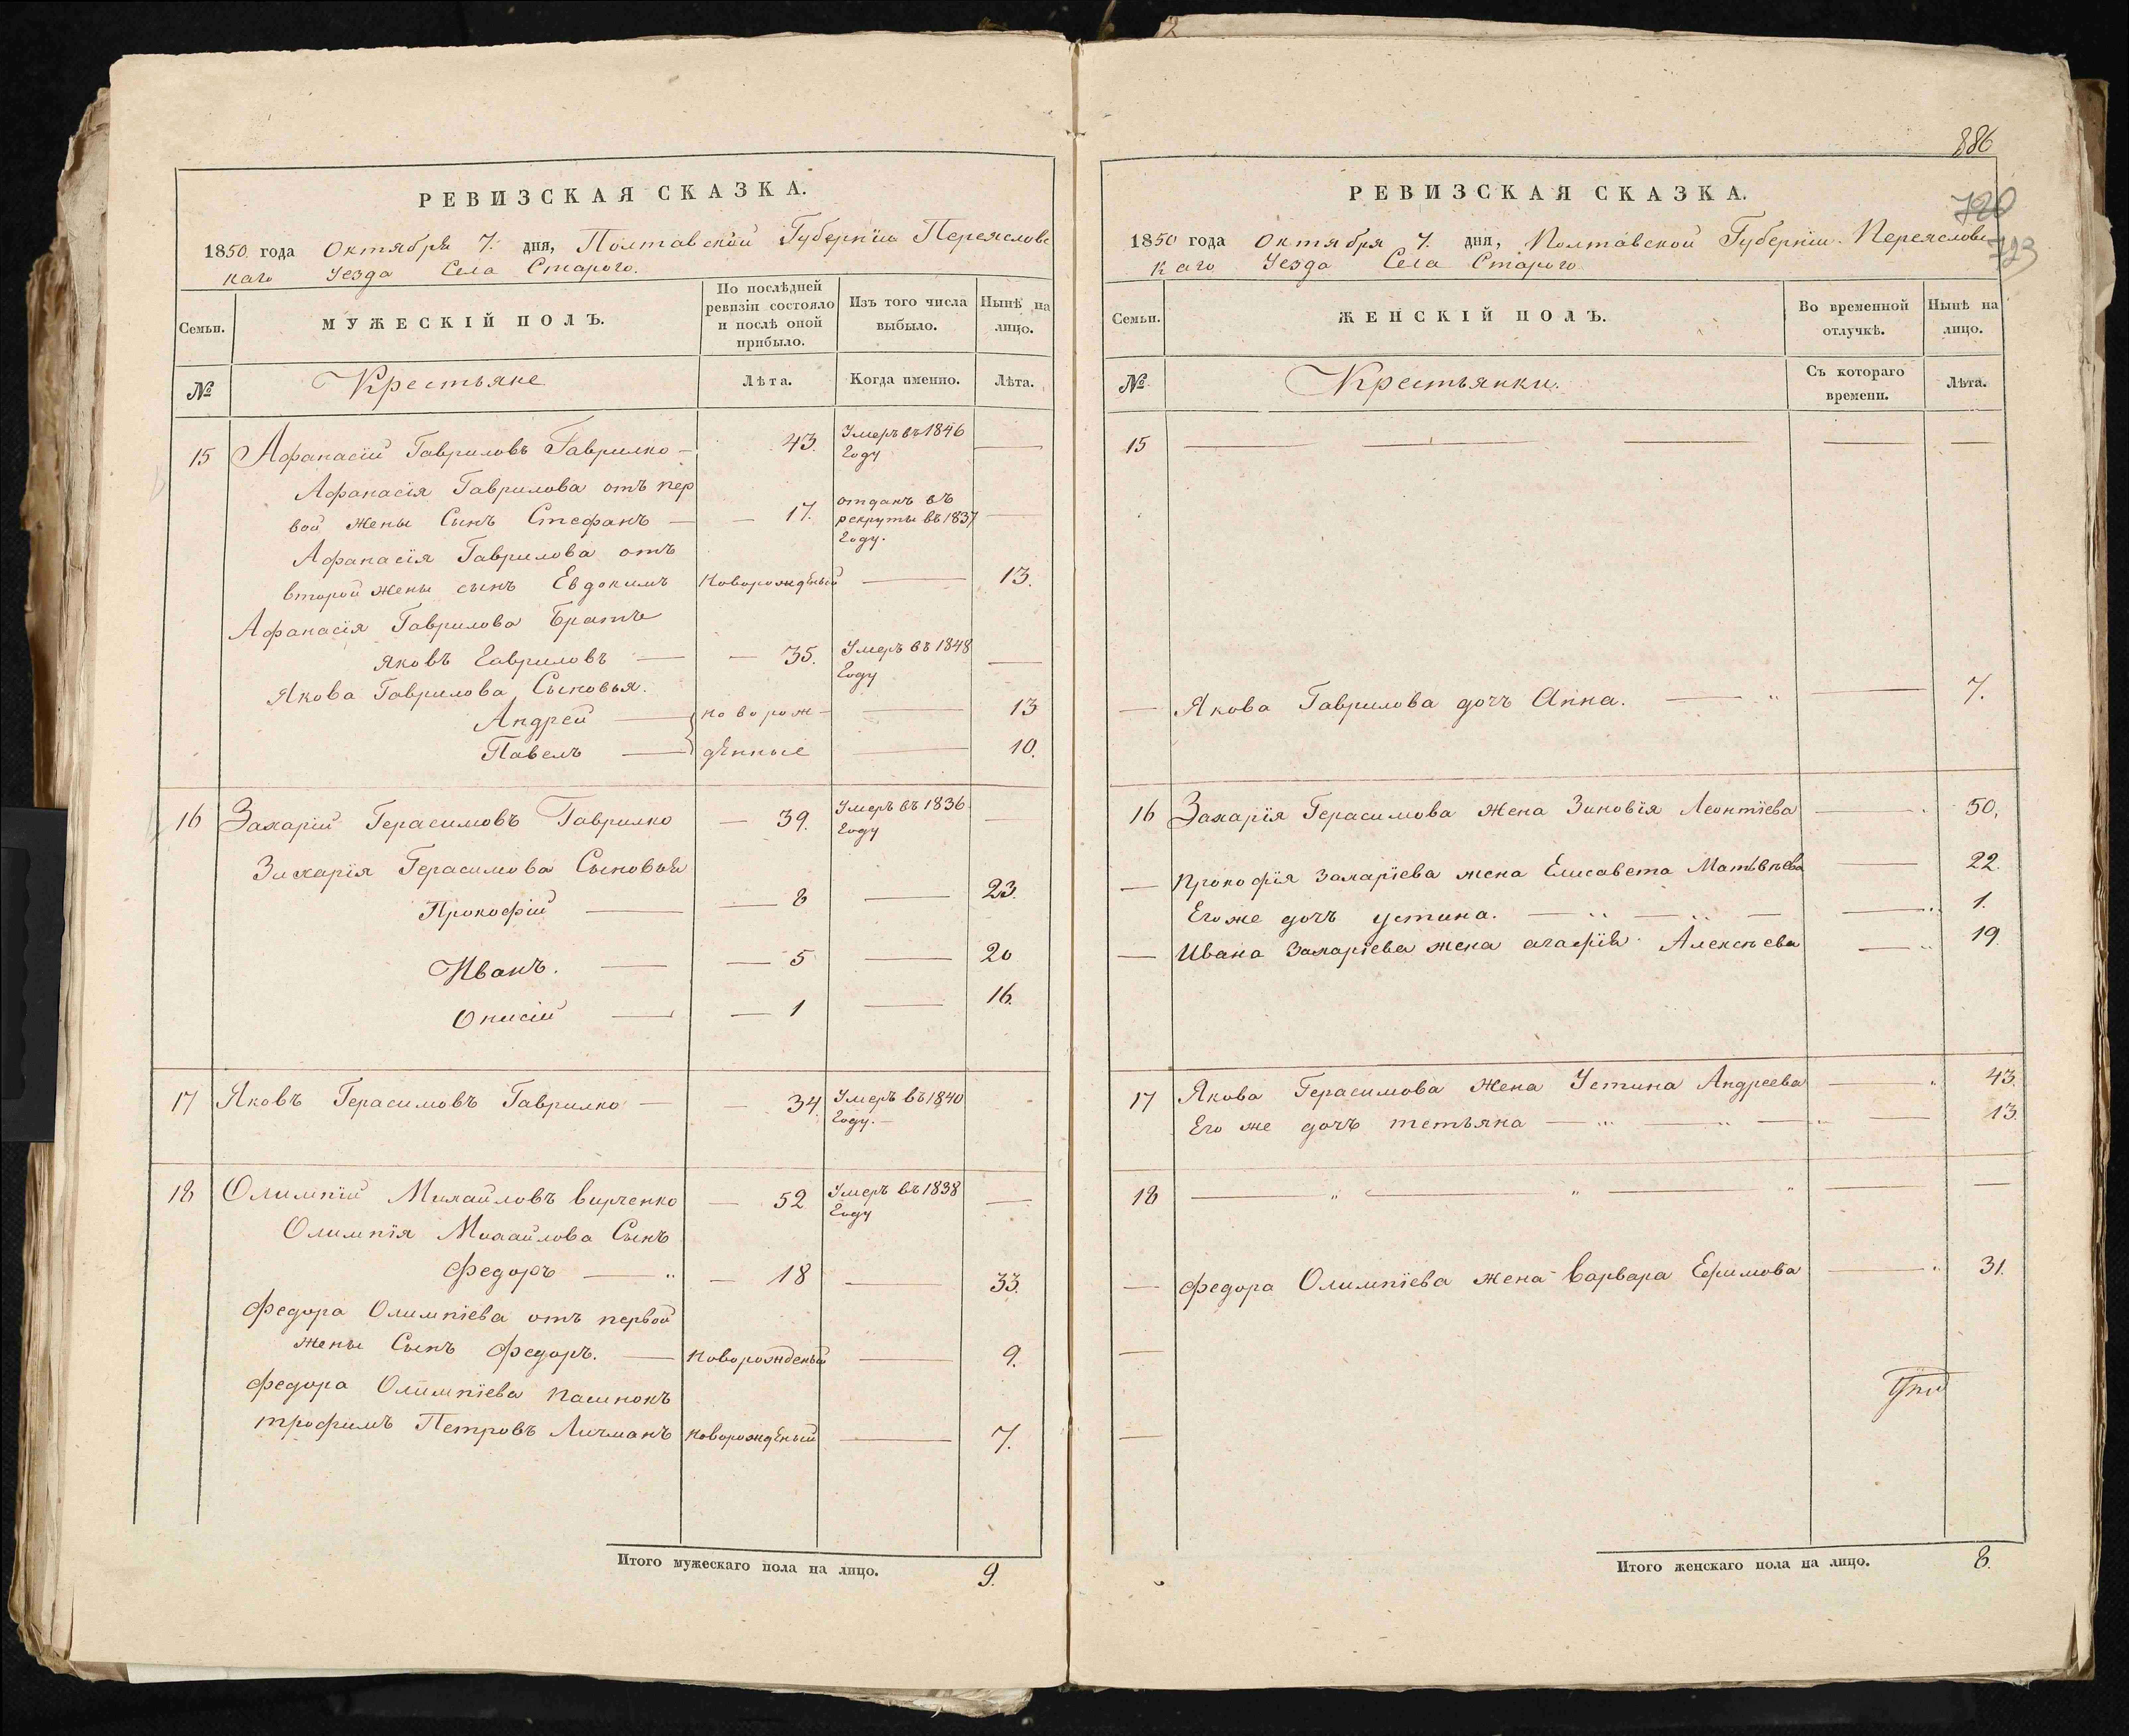 РЕВИЗСКАЯ СКАЗКА.
1850 года Октября 7. дня, Полтавской Губернїи Переяславс
каго Уезда Села Старого.
Семьи.
МУЖЕСКІЙ ПОЛЪ.
По послѣдней
ревизіи состояло
и послѣ оной
прибыло.
Изъ того числа
выбыло.
Нынѣ на
лицо.
№
Крестьяне
Лѣта.
Когда именно.
Лѣта.
15 Афанасїй Гавриловъ Гаврилко — 43. Умеръ въ 1846 —
году
Афанасїя Гаврилова отъ пер
вой жены Сынъ Стефанъ — — 17. отданъ въ —
рекруты въ 1837
году.
Афанасїя Гаврилова отъ
второй жены сынъ Евдокимъ Новорожденый — 13.
Афанасїя Гаврилова Братъ
Яковъ Гавриловъ — — 35. Умеръ въ 1848 —
году
Якова Гаврилова Сыновья.
Андрей — новорож- — 13
Павелъ — дѣнные — 10.
16 Захарїй Герасимовъ Гаврилко — 39. Умеръ въ 1836 —
году
Захарїя Герасимова Сыновья
Прокофїй — — 8 — 23.
Иванъ. — — 5 — 20
Онисїй — — 1 — 16.
17 Яковъ Герасимовъ Гаврилко — — 34. Умеръ въ 1840 -
году. —
18 Олимпїй Михайловъ Вирченко — 52 Умеръ въ 1838 —
году
Олимпїя Михайлова Сынъ
Федоръ — — 18 — 33.
Федора Олимпїева отъ первой
жены Сынъ Федоръ. — Новорожденый — 9.
Федора Олимпїева пасинокъ
трофимъ Петровъ Личманъ Новорождѣный — 7.
Итого мужескаго пола на лицо. 9.
886
720
РЕВИЗСКАЯ СКАЗКА.
1850 года Октября 7. дня, Полтавской Губернїи Переяславс
каго Уезда Села Старого
Семьи.
ЖЕНСКІЙ ПОЛЪ.
Во временной
отлучкѣ.
Нынѣ на
лицо.
№
Крестьянки.
Съ котораго
времени.
Лѣта.
15 — — — — —
— Якова Гаврилова дочъ Анна. — — 7.
16 Захарїя Герасимова Жена Зиновїя Леонтїева — 50.
— Прокофїя Захарїева жена Елисавета Матвѣева — 22.
Его же дочъ устина. — — — — 1.
— Ивана Захарїева жена агафїя Алексѣева — 19.
17 Якова Герасимова Жена Устина Андреева — 43.
Его же дочъ тетьяна — — — — 13.
18 — — — —
— Федора Олимпїева жена Варвара Ефимова — 31.
—
—
Итого женскаго пола на лицо. 8.